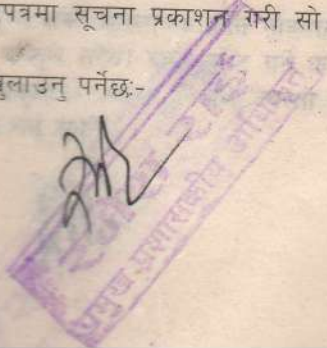 पत्रमा सूचना प्रकाशन गरी सो
बुलाउनु पर्नेछः-
प्रमुख प्रशासकीय अधिकृत